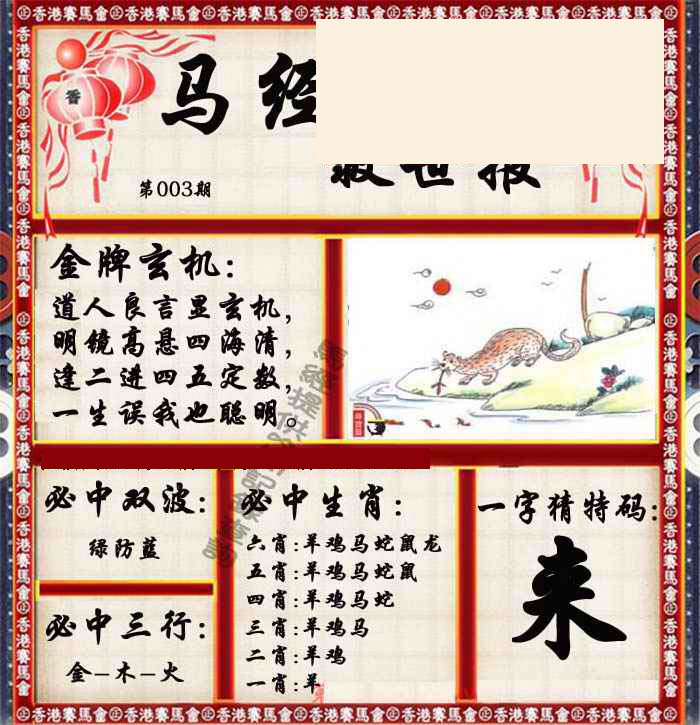 香港賽馬會
香
马经
救世报
第003期
金牌玄机:
道人良言显玄机,
明镜高悬四海清,
逢二进四五定数,
一生误我也聪明。
必中双波:
绿防蓝
必中三行:
金-木-火
必中生肖:
六肖:羊鸡马蛇鼠龙
五肖:羊鸡马蛇鼠
四肖:羊鸡马蛇
三肖:羊鸡马
二肖:羊鸡
一肖:羊
一字猜特码:
来